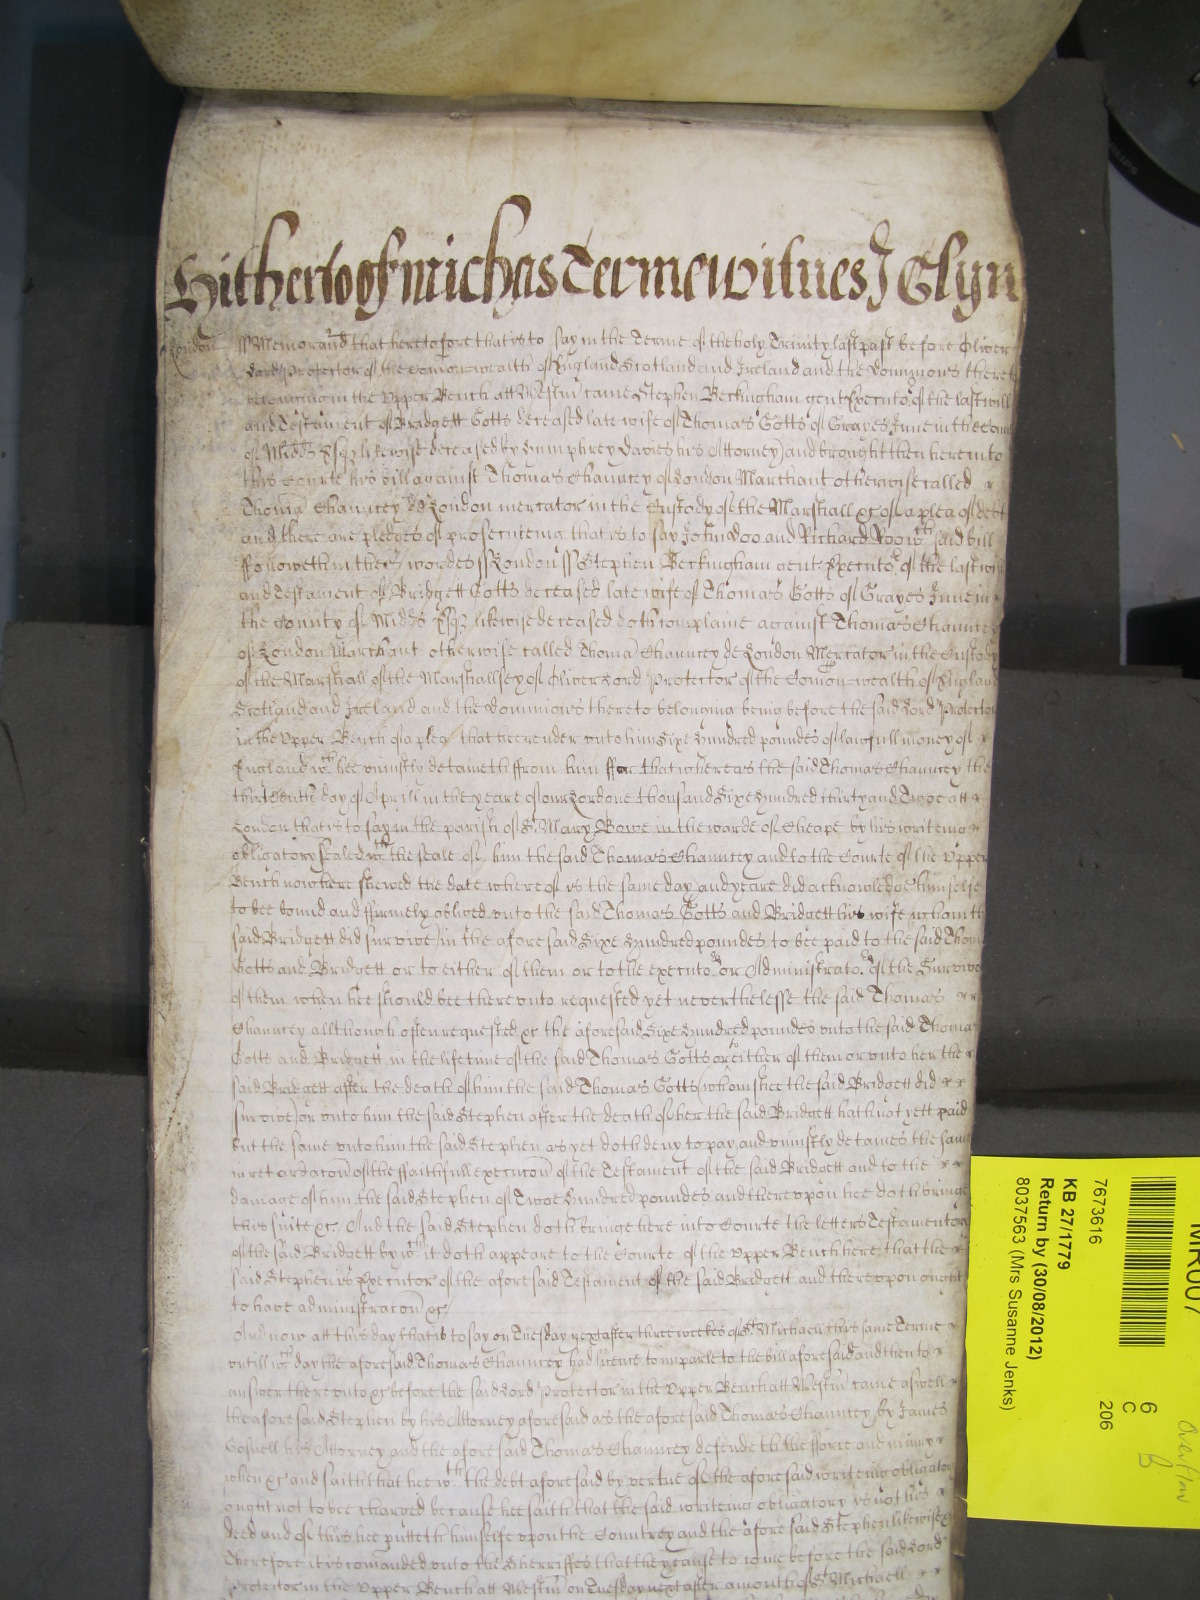 Hitherto of Michas Terme Witnes J Glyn
London ss Memorand that heretofore that is to say in the Terme of the holy Trinity last past before Oliver
Lord Protector of the Comonwealth of England Scotland and Ireland and the Dominions thereto
belonging in the Upper Bench att Westm came Stephen Beckingham gent Executor of the last will
and Testament of Bridgett Gotts deceased late wife of Thomas Gotts of Grayes Inne in the Coun
of Midds Esqz likewise deceased by Humphrey Davies his Attorney and brought then here into
this Courte his bill against Thomas Chauncey of London Marchant otherwise called
Thoma Chauncey de London mercator in the Custody of the Marshall &c of a plea of debt
and there are pledges of prosecuteing that is to say John Doo and Richard Roo wch said bill
followeth in theis wordes ss London ss Stephen Beckingham gent Executor of the last will
and Testament of Bridgett Gotts deceased late wife of Thomas Gotts of Grayes Inne in
the County of Midds Esqz likewise deceased doth complaine against Thomas Chauncey
of London Marchant otherwise called Thoma Chauncey de London Mercator in the Custody
of the Marshall of the Marshallsey of Oliver Lord Protector of the Comonwealth of England
Scotland and Ireland and the Dominions thereto belonging being before the said Lord Protector
in the Upper Bench of a plea that hee render unto him Sixe Hundred poundes of lawfull money of
England wch hee uniustly detaineth from him ffor that whereas the said Thomas Chauncey the
thirteenth day of Aprill in the yeare of our Lord one thousand Sixe Hundred thirty and Twoe att
London that is to say in the parish of St Mary Bowe in the warde of Cheape by his writeing
obligatory sealed wth the seale of him the said Thomas Chauncey and to the Courte of the Upper
Bench now here shewed the date whereof is the same day and yeare did acknowledge himselfe
to bee bound and ffirmely obliged unto the said Thomas Gotts and Bridgett his wife whom the
said Bridgett did survive in the aforesaid Sixe Hundred poundes to bee paid to the said Thom
Gotts and Bridgett or to either of them or to the executors or Administrators of the Survivor
of them when hee should bee thereunto requested yet neverthelesse the said Thomas
Chauncey allthough often requested &c the aforesaid Sixe Hundred poundes unto the said Thomas
Gotts and Bridgett in the lifetime of the said Thomas Gotts or to either of them or unto her the
said Bridgett after the death of him the said Thomas Gotts (whom shee the said Bridgett did
survive) or unto him the said Stephen after the death of her the said Bridgett hath not yett paid
but the same unto him the said Stephen as yet doth deny to pay and uniustly detaines the same
in retardacon of the ffaithfull execucon of the Testament of the said Bridgett and to the
damage of him the said Stephen of Twoe Hundred poundes and thereupon hee doth bringe
this suite &c And the said Stephen doth bringe here into Courte the letters Testamentory
of the said Bridgett by wch it doth appeare to the Courte of the Upper Bench here that the
said Stephen is Executor of the aforesaid Testament of the said Bridgett and thereupon ought
to have administracon &c
And now att this day that is to say on Tuesday next after three weekes of St Michaell this same Terme
untill wch day the aforesaid Thomas Chauncey had licence to imparle to the bill aforesaid and then to
answer thereunto &c before the said Lord Protector in the Upper Bench att Westm came aswell
the aforesaid Stephen by his Attorney aforesaid as the aforesaid Thomas Chauncey by James
Gosnell his Attorney and the aforesaid Thomas Chauncey defendeth the fforce and iniury
when &c and saith that hee wth the debt aforesaid by vertue of the aforesaid writeing obligatory
ought not to bee charged because hee saith that the said writeing obligatory is not his
deed and of this hee putteth himselfe upon the Countrey and the aforesaid Stephen likewise
Therefore it is comanded unto the Sherriffes that they cause to come before the said Lord
Protector in the Upper Bench att Westm on Tuesday next after a month of St Michaell
MR007
7673616
KB 27/1779
Return by (30/08/2012)
8037563 (Mrs Susanne Jenks)
6
C
206
Overflow